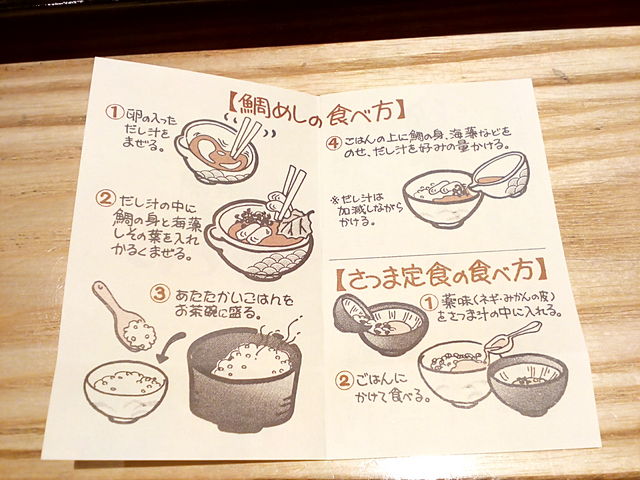 【鯛めしの食べ方】
①卵の入った
だし汁を
まぜる。
②だし汁の中に
鯛の身と海藻
しその葉を入れ
かるくまぜる。
③あたたかいごはんを
お茶碗に盛る。
④ごはんの上に鯛の身、海藻などを
のせ、だし汁を好みの量かける。
※だし汁は
加減しながら
かける。
【さつま定食の食べ方】
①薬味(ネギ・みかんの皮)
をさつま汁の中に入れる。
②ごはんに
かけて食べる。